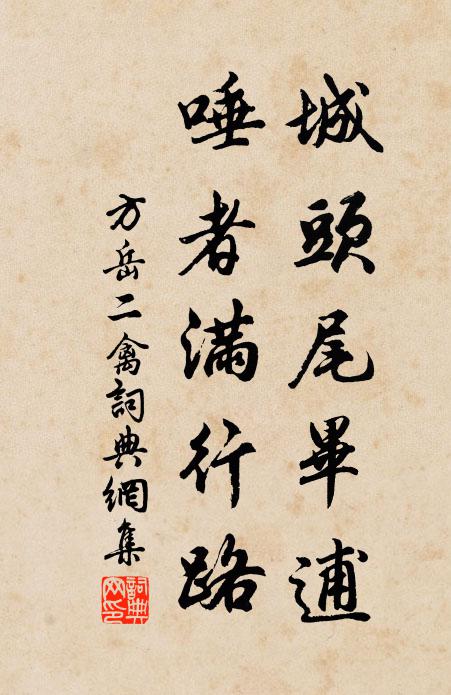 城頭尾畢逋
唾者滿行路
方岳二禽詞典網集
詞典网印